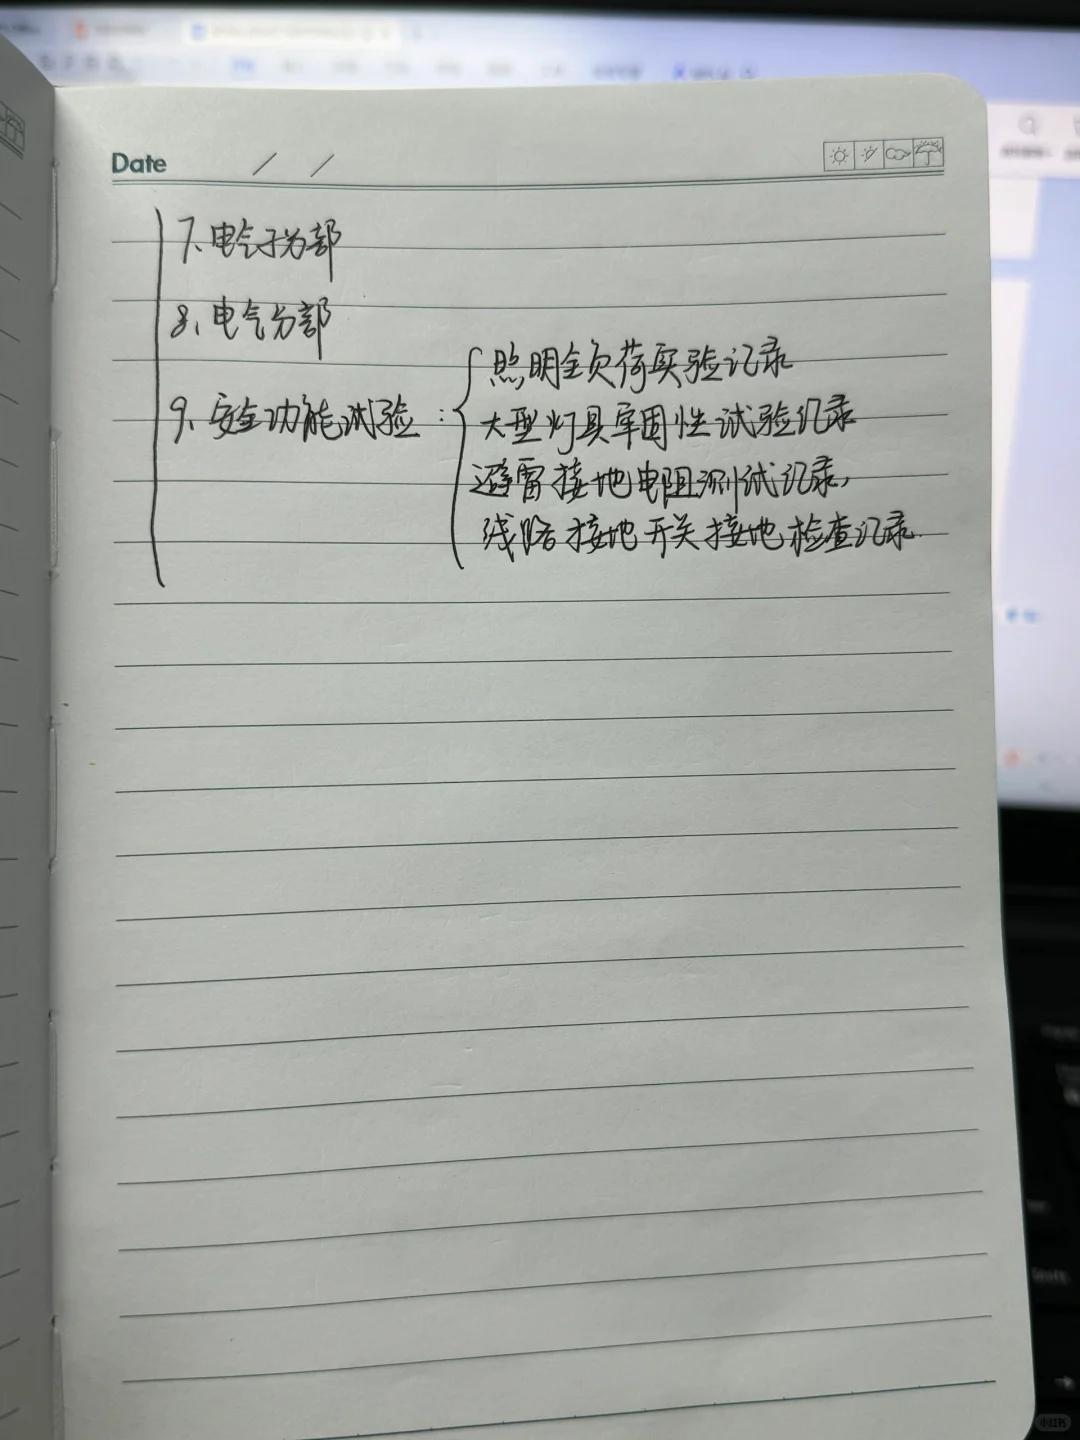 Date / /
7、电气子分部
8、电气分部
9、安全功能试验：
照明全负荷实验记录
大型灯具牢固性试验记录
避雷接地电阻测试记录，
线路接地开关接地检查记录.
小红书